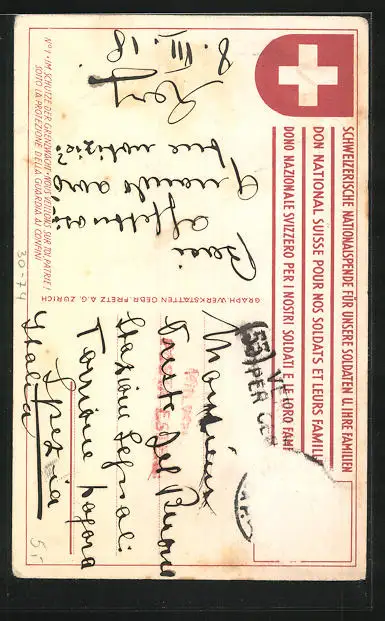 SCHWEIZERISCHE NATIONALSPENDE FÜR UNSERE SOLDATEN U. IHRE FAMILIEN
DON NATIONAL SUISSE POUR NOS SOLDATS ET LEURS FAMIL
DONO NAZIONALE SVIZZERO PER I NOSTRI SOLDATI E LE LORO FAM
8. III. 18
Baci
affettuosi
Quando avrò
tue notizie?
GRAPH. WERKSTÄTTEN GEBR. FRETZ A.G. ZÜRICH
Nº 1 · IM SCHUTZE DER GRENZWACHT · NOUS VEILLONS SUR TOI, PATRIE!
SOTTO LA PROTEZIONE DELLA GUARDIA AI CONFINI
(53) VE
PER CEN
Monsieur
Stazione Segnali
Torrione
Spezia
Italia
30-74
5.-